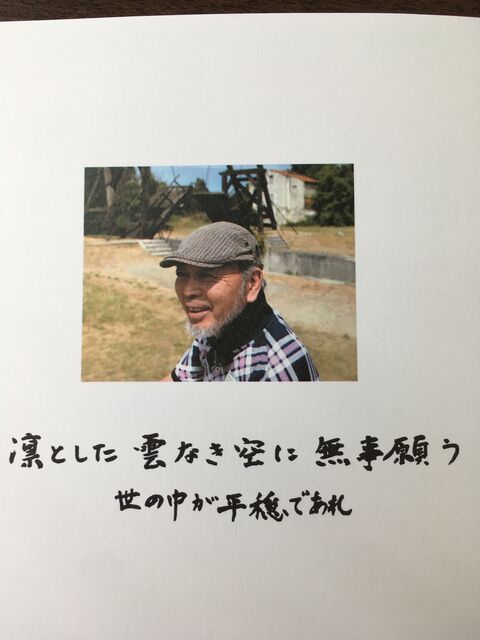 凛とした 雲なき空に 無事願う
世の中が平穏であれ